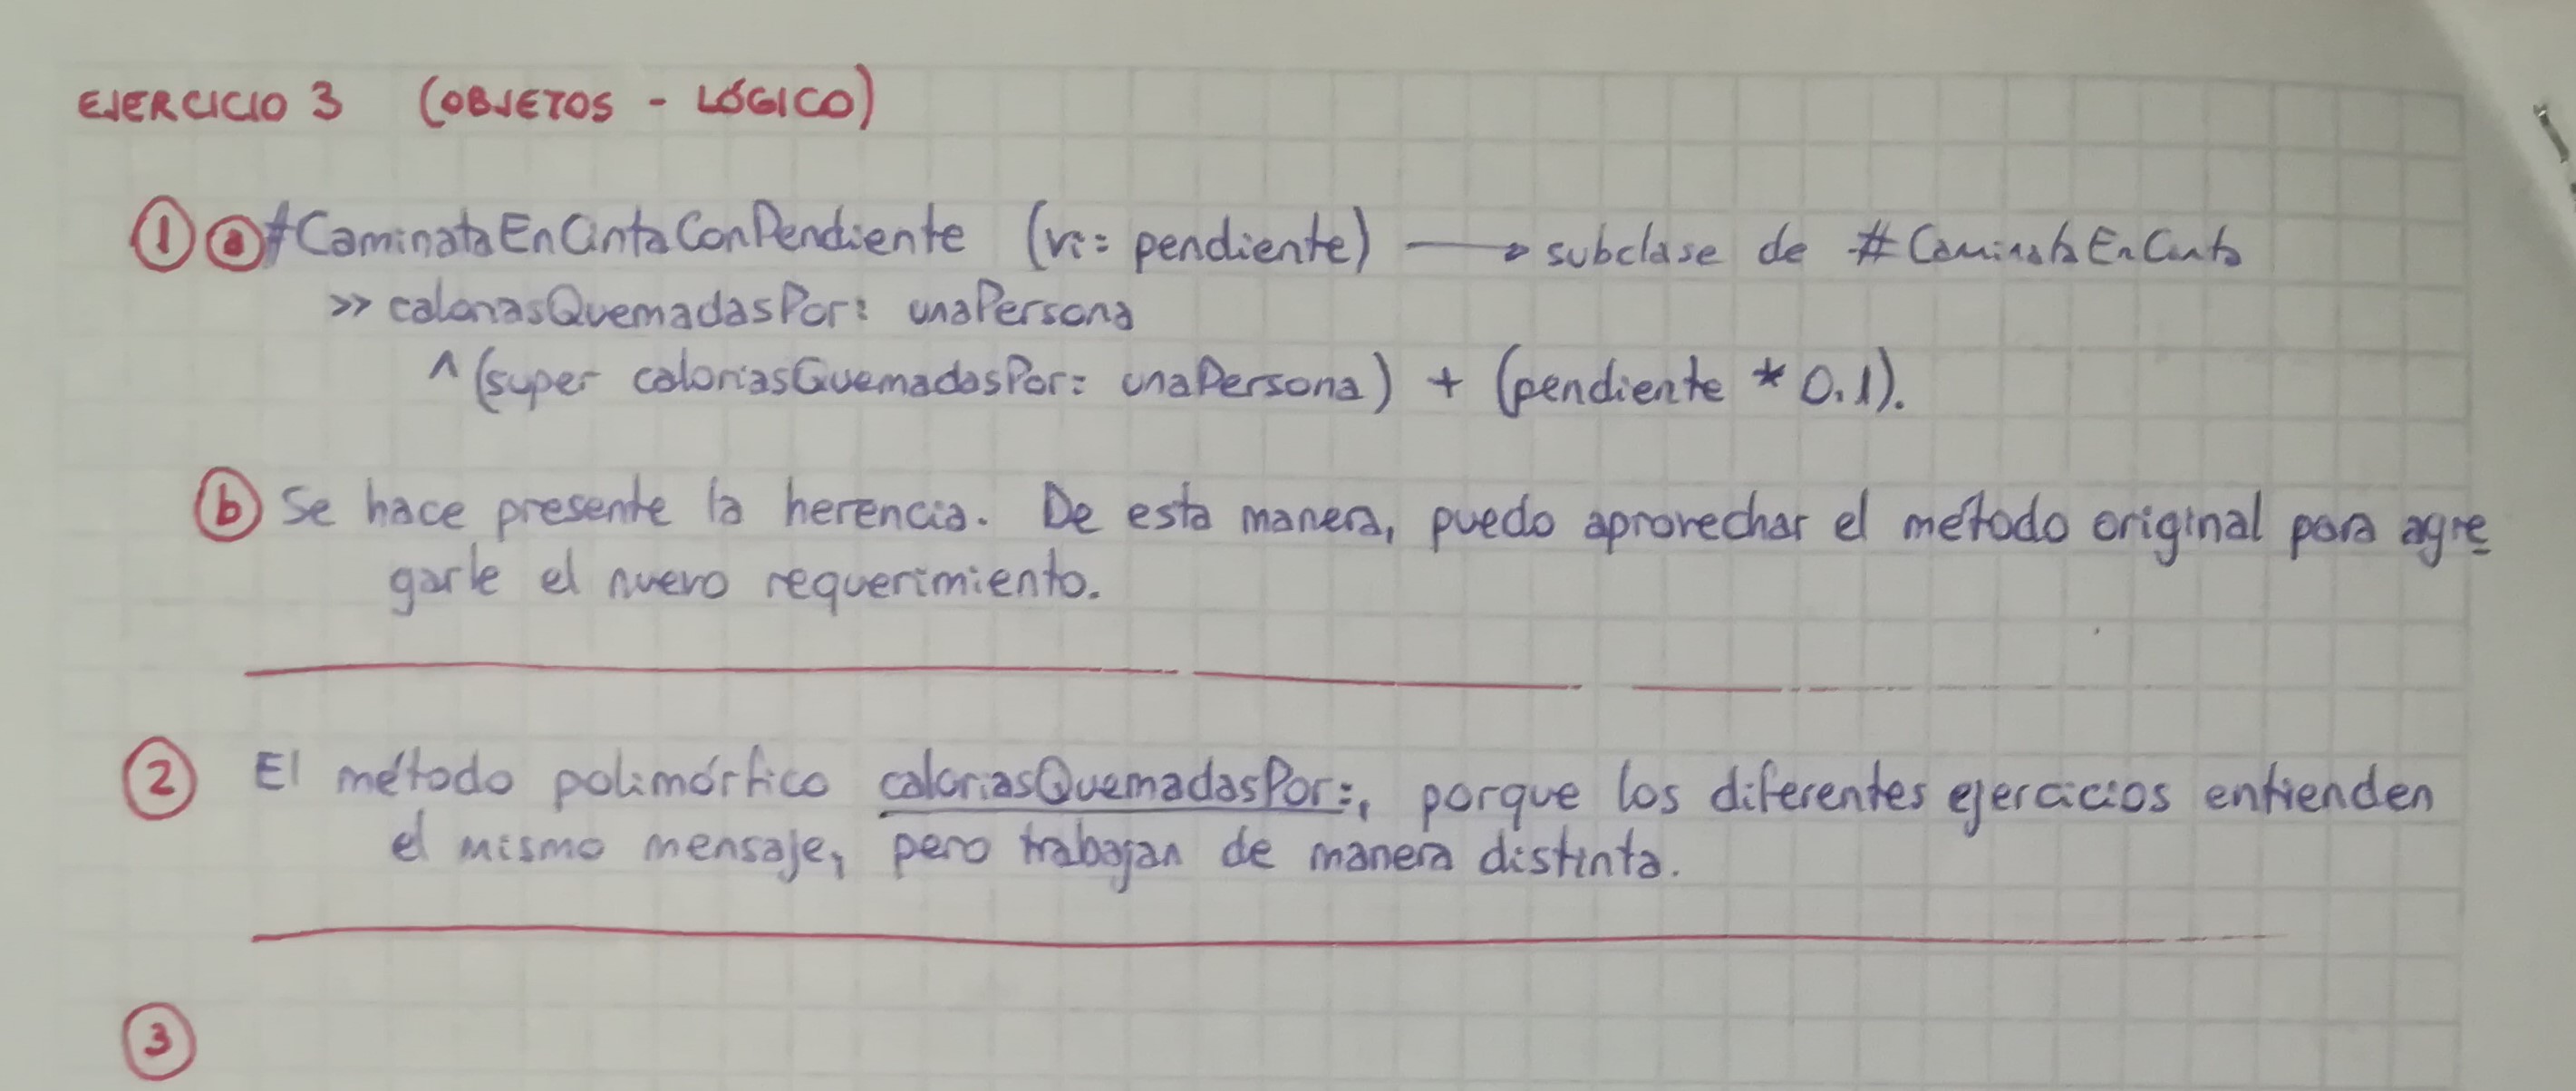 EJERCICIO 3 (OBJETOS - LÓGICO)
1 a #CaminataEnCintaConPendiente (vi: pendiente) → subclase de #CaminataEnCinta
>> caloriasQuemadasPor: unaPersona
^ (super caloriasQuemadasPor: unaPersona) + (pendiente * 0.1).
b Se hace presente la herencia. De esta manera, puedo aprovechar el método original para agre
garle el nuevo requerimiento.
2 El método polimórfico caloriasQuemadasPor:, porque los diferentes ejercicios entienden
el mismo mensaje, pero trabajan de manera distinta.
3